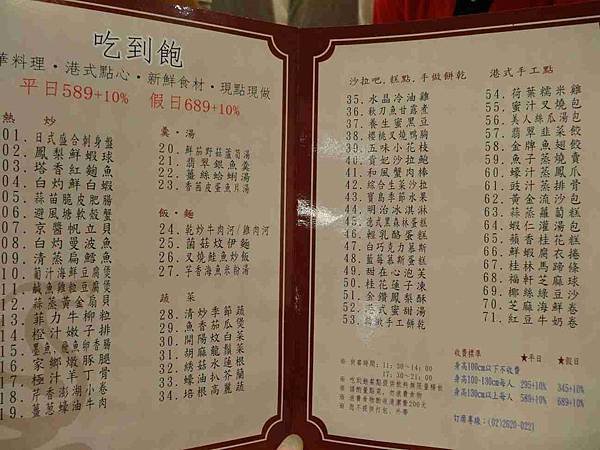 吃到飽
華料理・港式點心・新鮮食材・現點現做
平日589+10% 假日689+10%
熱 炒
01. 日式盛合刺身盤
02. 鳳梨鮮蝦球
03. 塔香紅麴魚
04. 白灼鮮白蝦
05. 蒜苗脆皮肥腸
06. 避風塘軟殼蟹
07. 京醬帆立貝
08. 白灼曼波魚
09. 清蒸扁鱈魚
10. 葡汁海鮮豆腐煲
11. 鹹魚雞粒豆腐煲
12. 蒜蒸黃金扇貝
13. 菲力牛柳粒
14. 橙汁嫩子排
16. 家鄉燉豚腿
17. 極汁羊丁骨
18. 芹香澎湖小卷
19. 薑蔥蠔油牛肉
羹・湯
20. 鮮茄野菇蘆筍湯
21. 翡翠銀魚羹
22. 薑絲蛤蜊湯
23. 香茜皮蛋魚片湯
飯・麵
24. 乾炒牛肉河/雞肉河
25. 菌菇炆伊麵
26. 叉燒鮭魚炒飯
27. 芋香海魚米粉湯
蔬 菜
28. 清炒季節蔬
29. 魚香茄瓜煲
30. 開陽炆白菜
31. 胡麻龍鬚菜
32. 綉菇水蓮根
33. 蠔油扒芥蘭
34. 培根高麗蔬
沙拉吧.糕點.手做餅乾
35. 水晶冷油雞
36. 秋刀魚甘露煮
37. 養生蜜黑豆
38. 櫻桃叉燒鴨胸
39. 五味小花枝
40. 貴妃沙拉鮑
41. 和風蟹肉棒
42. 綜合生菜沙拉
43. 寶島季節水果
44. 明治冰淇淋
45. 德式黑森林蛋糕
46. 輕乳酪蛋糕
47. 白巧克力慕斯
48. 藍莓慕斯蛋糕
49. 甜在心泡芙
50. 桂花蓮子凍
51. 金鑽鳳梨酥
52. 港式蜜甜湯
53. 特緻手工餅乾
港式手工點
54. 荷葉糯米雞
55. 蜜汁叉燒包
56. 美人絲瓜湯包
57. 翡翠韭菜餃
58. 金牌魚翅餃
59. 魚子蒸燒賣
60. 蠔汁蒸鳳爪
61. 豉汁蒸排骨
62. 黃金流沙包
63. 蒜蒸蘿蔔糕
64. 蝦仁灌湯包
65. 蘋香桂花糕
66. 鮮蝦炸春捲
67. 桂林馬蹄條
68. 福軒芝麻球
69. 椰絲綠豆沙
70. 芝麻海鮮卷
71. 紅豆牛奶卷
※ 供餐時間:11:30~14:00
17:30~21:00
收費標準 ★平日 ★假日
身高100cm以下不收費
身高100-130cm每人 295+10% 345+10%
身高130cm以上每人 589+10% 689+10%
訂席專線:(02)2620-0221